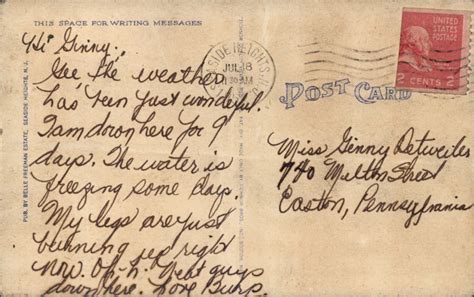 THIS SPACE FOR WRITING MESSAGES
Hi Ginny,
Gee the weather
has been just wonderful.
I am down here for 9
days. The water is
freezing some days.
My legs are just
burning up right
now. Oh-h! Neat guys
down here. Love Burp.
PUB. BY BELLE FREEMAN ESTATE, SEASIDE HEIGHTS, N. J.
SEASIDE HEIGHTS, N.J.
JUL 18
AM
UNITED
STATES
POSTAGE
2 CENTS 2
POST CARD
Miss Ginny Detweiler
740 Milton Street
Easton, Pennsylvania